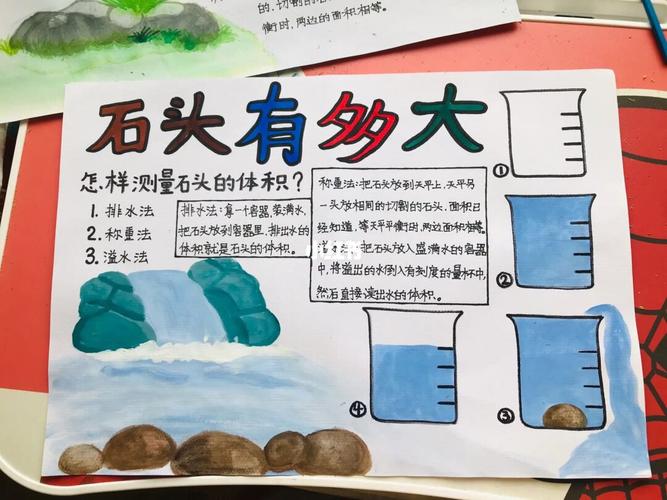 的,切割的石
衡时,两边的面积相等。
石头有多大
怎样测量石头的体积?
1. 排水法
2. 称重法
3. 溢水法
排水法:拿一个容器,装满水,
把石头放到容器里,排出水的
体积就是石头的体积。
称重法:把石头放到天平上,天平另
一头放相同的切割的石头,面积已
经知道,等天平平衡时,两边面积相等。
溢水法:把石头放入盛满水的容器
中,将溢出的水倒入有刻度的量杯中,
然后直接读出水的体积。
①
②
③
④
小红书